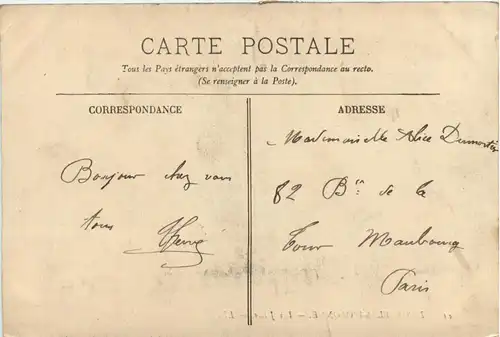 CARTE POSTALE
Tous les Pays étrangers n'acceptent pas la Correspondance au recto.
(Se renseigner à la Poste).
CORRESPONDANCE
Bonjour chez vous
tous Hervé
ADRESSE
Mademoiselle Alice Dumortier
82 Bd de la
Tour Maubourg
Paris